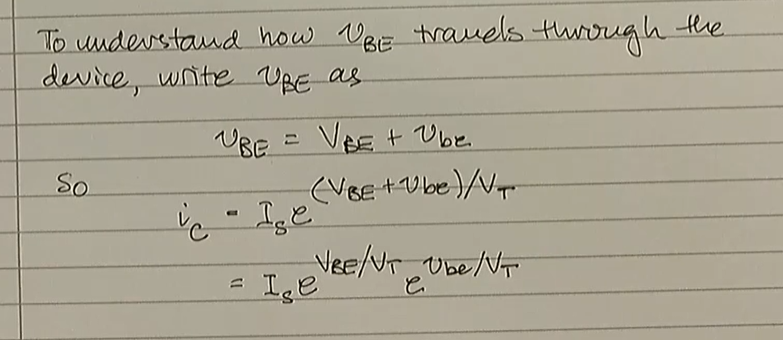 To understand how v_BE travels through the
device, write v_BE as
v_BE = V_BE + v_be
So
i_C = I_s e^(V_BE + v_be)/V_T
= I_s e^V_BE/V_T e^v_be/V_T